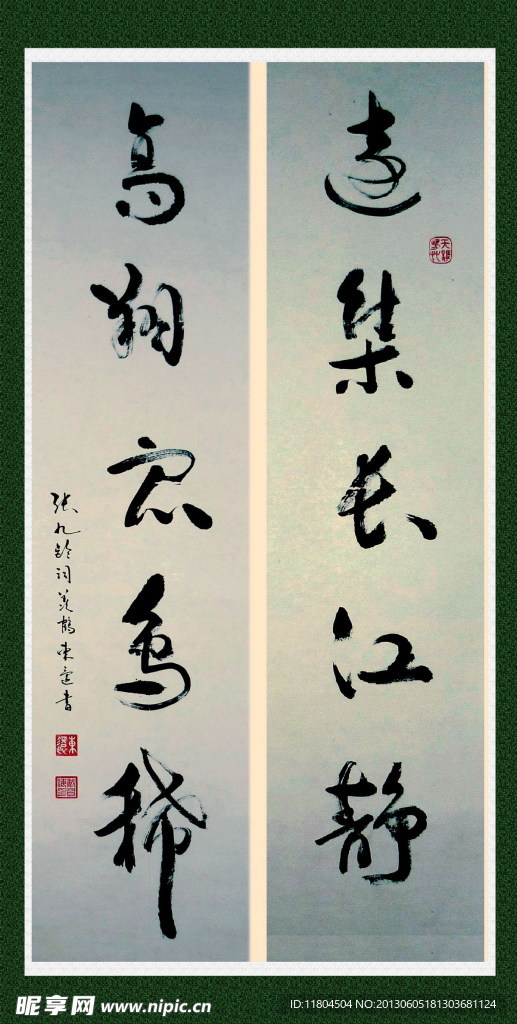 遠集長江静
高翔众鳥稀
張九齡詞羡鶴東
昵享网 www.nipic.cn
ID:11804504 NO:20130605181303681124